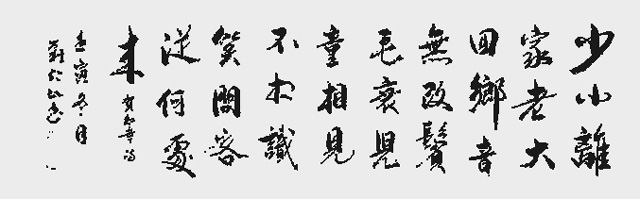 少小離
家老大
回鄉音
無改鬢
毛衰兒
童相見
不相識
笑問客
從何處
來
賀知章詩
壬寅冬月